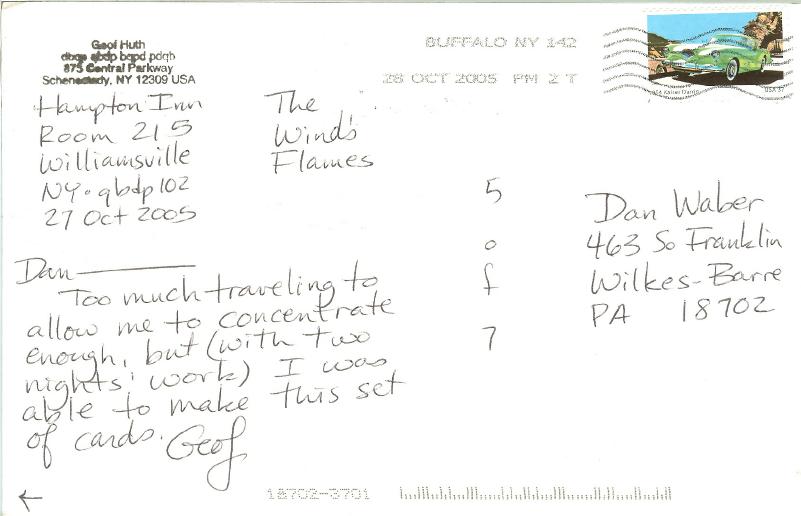 Geof Huth
dbqp qbdp bqpd pdqb
875 Central Parkway
Schenectady, NY 12309 USA
Hampton Inn
Room 215
Williamsville
NY · qbdp 102
27 Oct 2005
The
Winds
Flames
BUFFALO NY 142
28 OCT 2005 PM 2 T
USA 37
5
o
f
7
Dan Waber
463 So Franklin
Wilkes-Barre
PA 18702
Dan
Too much traveling to
allow me to concentrate
enough, but (with two
nights' work) I was
able to make this set
of cards. Geof
←
18702-3701